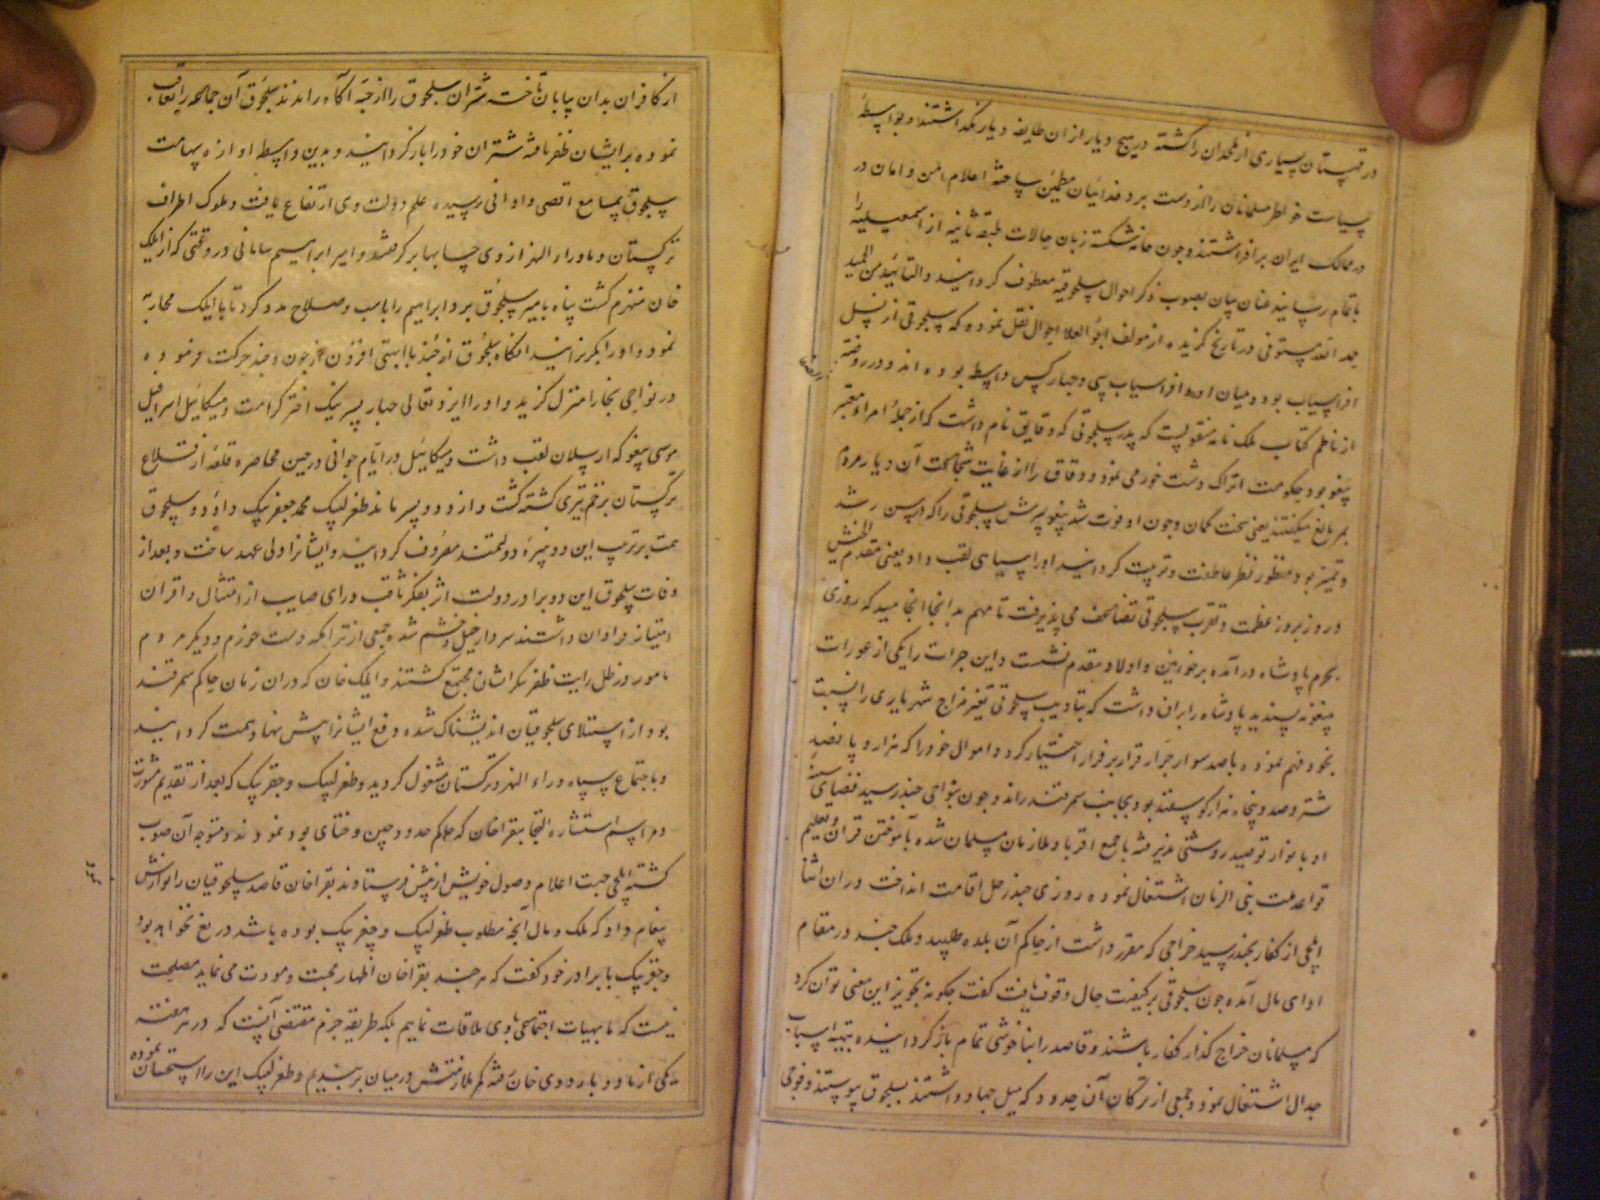 در قهستان بسیاری از ملحدان را کشته در هیچ دیار ازان طایفه دیار نگذاشتند و بواسطهٔ
سیاست خواطر مسلمانان را از دست برد فدائیان مطمئن ساخته اعلام امن و امان در
در ممالک ایران برافراشتند و چون خامه شکسته زبان حالات طبقه ثانیه از اسمعیلیه را
باتمام رسانید عنان بیان بصوب ذکر احوال سلجوقیه معطوف گردانید والتائید من الله المجید
حمد الله مستوفی در تاریخ گزیده از مولف ابو العلا احوال نقل نموده که سلجوقی از نسل
افراسیاب بود و میان او و افراسیاب سی و چهار کس واسطه بوده اند و در روضة
از ناظم کتاب ملک نامه منقولست که پدر سلجوقی که دقایق نام داشت که از جملهٔ امراء معتبر
پیغو بود بحکومت اتراک دشت خزر می نمود و دقاق را از غایت شجاعت آن دیار مردم
تمر یالغ میگفتند یعنی سخت کمان و چون او فوت شد پیغو پسرش سلجوقی را که بسن رشد
و تمیز بود منظور نظر عاطفت و تربیت گردانید او را سباسی لقب داد یعنی مقدم الجیش
و روز بروز عظمت و تقرب سلجوقی تضاعف می پذیرفت تا مهم بدانجا انجامید که روزی
بحرم پادشاه درآمده بر خواتین و اولاد مقدم نشست و این جرات را یکی از عورات
پیغو نه پسندید پادشاه را بران داشت که بتادیب سلجوقی تغیر مزاج شهریاری را نسبت
بخود فهم نموده با صد سوار جرار قرار بر فرار اختیار کرد و اموال خود را که هزار و پانصد
شتر و صد و پنجاه هزار گوسفند بود بجانب سمرقند راند و چون بنواحی جند رسید فضای سینه
او با نوار توحید روشنی پذیرفته با جمیع اقربا و ملازمان مسلمان شده بآموختن قران و تعلیم
قواعد ملت نبی الزمان اشتغال نموده روزی جند رحل اقامت انداخت و دران اثنا
ایلچی از کفار بجند رسید خراجی که مقرر داشت از حاکم آن بلده طلبید و ملک جند در مقام
ادای مال آمده چون سلجوقی بر کیفیت حال وقوف یافت گفت چگونه تجویز این معنی توان کرد
که مسلمانان خراج گذار کفار باشند و قاصد را بناخوشی تمام باز گردانیده بتهیه اسباب
جدال اشتغال نمود و جمعی از ترکان آن حدود که میل جهاد داشتند بسلجوق پیوستند و فوجی
از کافران بدان بیابان تاخته شتران سلجوق را از جبه آگاه راندند سلجوق آن جماعه را تعاقب
نموده بر ایشان ظفر یافته شتران خود را باز گردانید و بدین واسطه آوازه شهامت
سلجوق بمسامع اقصی و ادانی رسیده علم دولت وی ارتفاع یافت و ملوک اطراف
ترکستان و ماوراء النهر از وی حسابها برگرفتند و امیر ابراهیم سامانی در وقتی که از ایلک
خان منهزم گشت پناه بامیر سلجوق برد و ابراهیم را باسب و سلاح مدد کرد تا با ایلک محاربه
نمود و او را بگریزانید آنگاه سلجوق از جند با ابهتی افزون از چون و چند حرکت فرموده
در نواحی بخارا منزل گزید و او را ایزد تعالی چهار پسر نیک اختر کرامت و میکائیل اسرافیل
موسی پیغو که ارسلان لقب داشت و میکائیل در ایام جوانی در حین محاصره قلعه از قلاع
ترکستان بزخم تیری کشته گشت و ازو دو پسر ماند طغرلبیک محمد جعفر بیک داؤد و سلجوق
همت بر ترتیب این دو نبیرهٔ دولتمند مصروف گردانید و ایشانرا ولی عهد ساخت و بعد از
وفات سلجوق این دو برادر دولت اثر بفکر ثاقب و رای صایب از امثال و اقران
امتیاز فراوان داشتند سردار خیل و حشم شده جمعی از تراکمه دست خوزم و دیگر مردم
نامور در ظل رایت ظفر نگار ایشان مجتمع گشتند و ایلک خان که دران زمان حاکم سمرقند
بود از استیلای سلجوقیان اندیشناک شده و دفع ایشانرا پیش نهاد همت گردانید
و باجتماع سپاه وراء النهر و ترکستان مشغول گردید و طغرلبیک و جغربیک که بعد از تقدیم مشورت
و مراسم استشاره التجا ببغراخان که حاکم حدود چین و ختای بود نمودند و متوجه آن صوب
گشته ایلچی جهت اعلام وصول خویش از پیش فرستادند بغراخان قاصد سلجوقیان را نوازش
پیغام داد که ملک و مال آنچه مطلوب طغرلبیک و جغربیک بوده باشد دریغ نخواهد بود
و جغربیک با برادر خود گفت که هر چند بغراخان اظهار محبت و مودت می نماید مصلحت
نیست که ما بهیات اجتماعی باوی ملاقات نماییم بلکه طریقه حزم مقتضی آنست که در هر هفته
یکی از ما دو باردوی خان رفته کمر ملازمتش در میان بر بندیم و طغرلبیک این را استحسان نموده